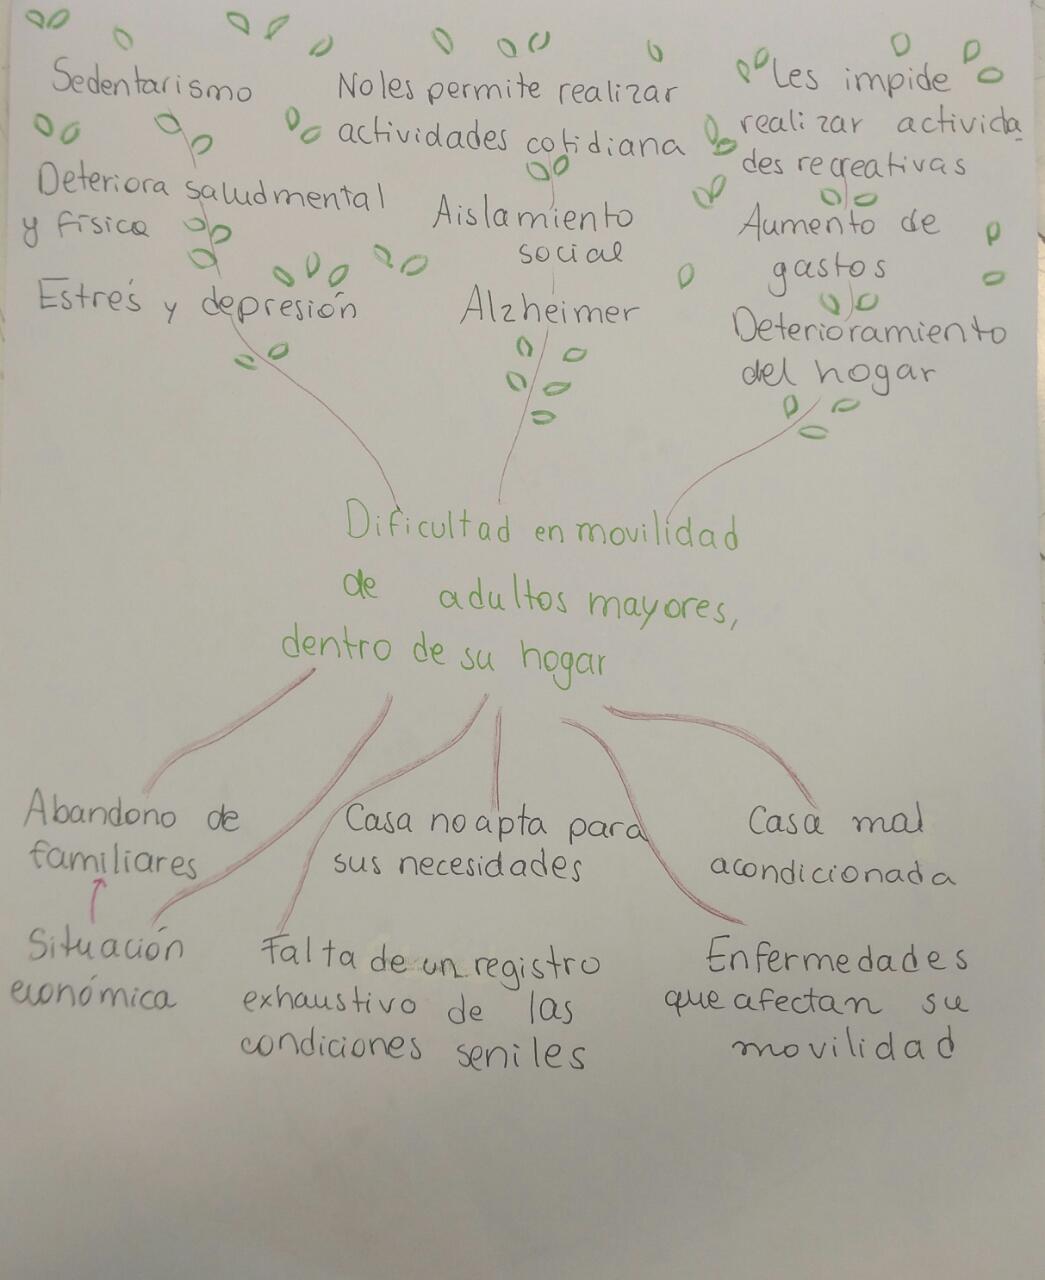 Sedentarismo
Deteriora salud mental
y física
Estrés y depresión
No les permite realizar
actividades cotidiana
Aislamiento
social
Alzheimer
Les impide
realizar activida
des recreativas
Aumento de
gastos
Deterioramiento
del hogar
Dificultad en movilidad
de adultos mayores,
dentro de su hogar
Abandono de
familiares
Situación
económica
Casa no apta para
sus necesidades
Falta de un registro
exhaustivo de las
condiciones seniles
Casa mal
acondicionada
Enfermedades
que afectan su
movilidad